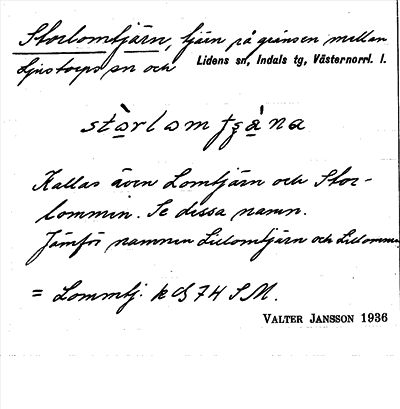 Storlomtjärn, tjärn på gränsen mellan
Ljustorps sn och Lidens sn, Indals tg, Västernorrl. l.
stàrlom tʃɛ̀na
Kallas även Lomtjärn och Stor-
lommin. Se dessa namn.
Jämför namnen Lillomtjärn och Lillommin
= Lommtj. k bl 74 SM.
VALTER JANSSON 1936